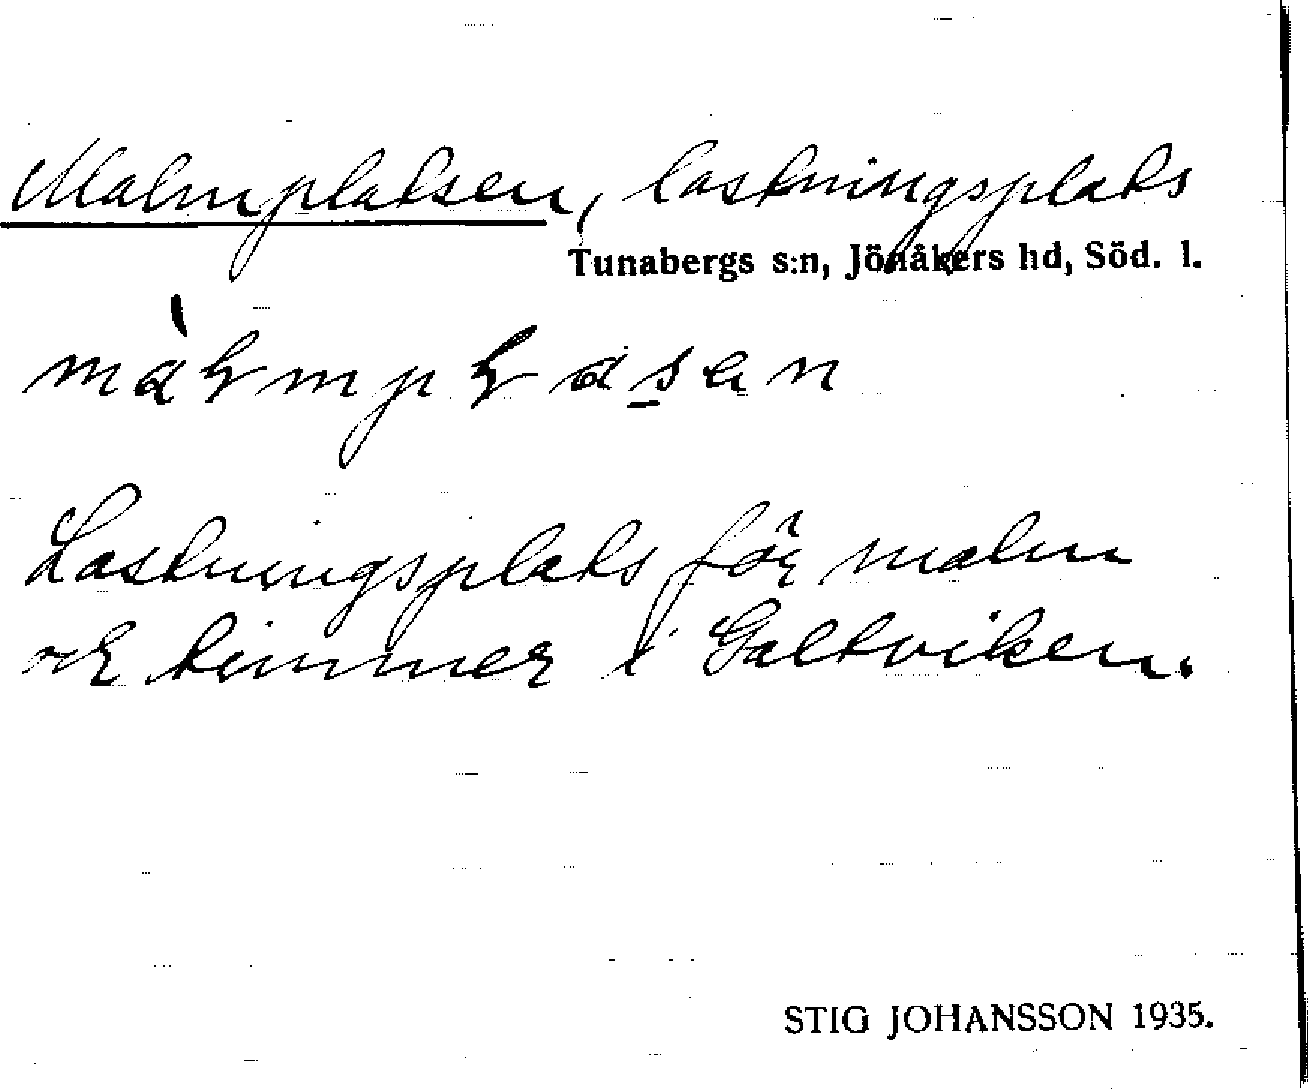 Malmplatsen, lastningsplats
Tunabergs s:n, Jönåkers hd, Söd. l.
màɫmpɫasen
Lastningsplats för malm
och timmer i Galtviken.
STIG JOHANSSON 1935.